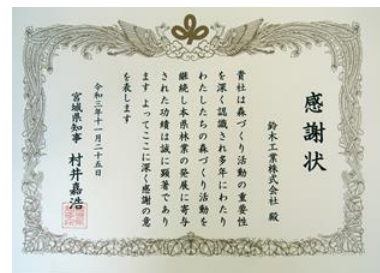 感謝状
鈴木工業株式会社 殿
貴社は森づくり活動の重要性
を深く認識され多年にわたり
わたしたちの森づくり活動を
継続し本県林業の発展に寄与
された功績は誠に顕著であり
ます よってここに深く感謝の意
を表します
令和三年十一月二十五日
宮城県知事 村井嘉浩